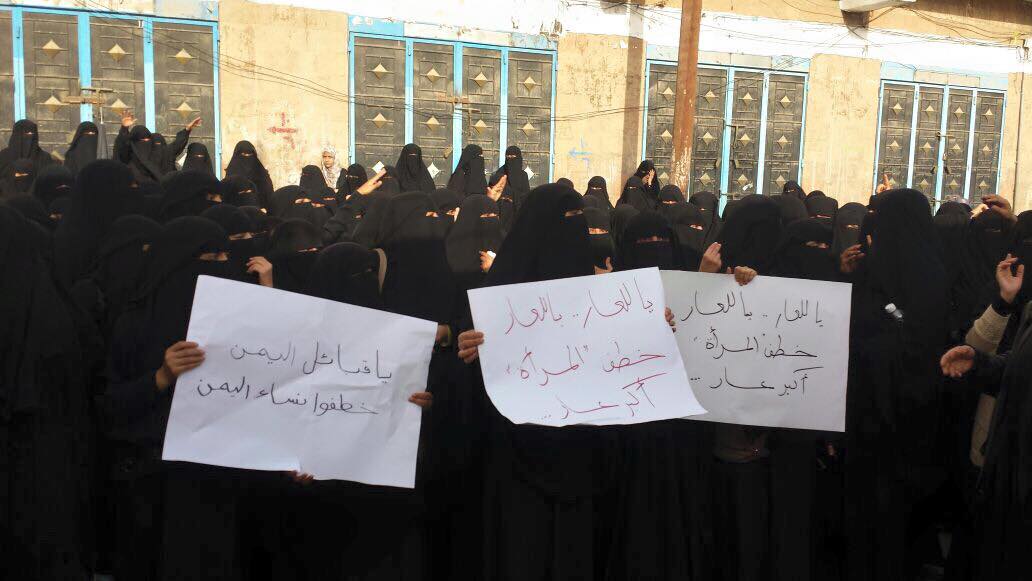 يا قبائل اليمن
خطفوا نساء اليمن
ياللعار .. ياللعار
خطف "المرأة"
أكبر عار ...
ياللعار .. ياللعار
خطف "المرأة"
أكبر عار ...